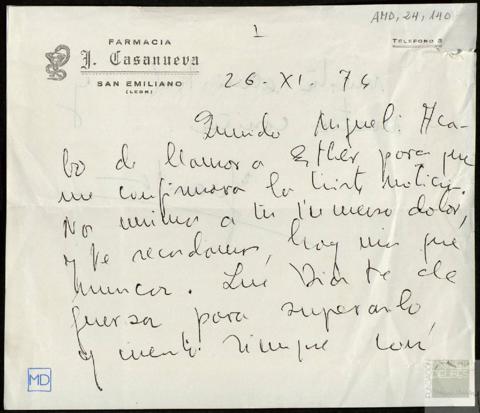 1
AMD, 24, 140
FARMACIA
J. Casanueva
SAN EMILIANO
(LEON)
TELEFONO 3
26. XI. 74
Querido Miguel: Aca-
bo de llamar a Esther para que
me confirmara la triste noticia.
Nos unimos a tu inmenso dolor,
y te recordamos, hoy más que
nunca. Que Dios te dé
fuerza para superarlo
y siempre
MD